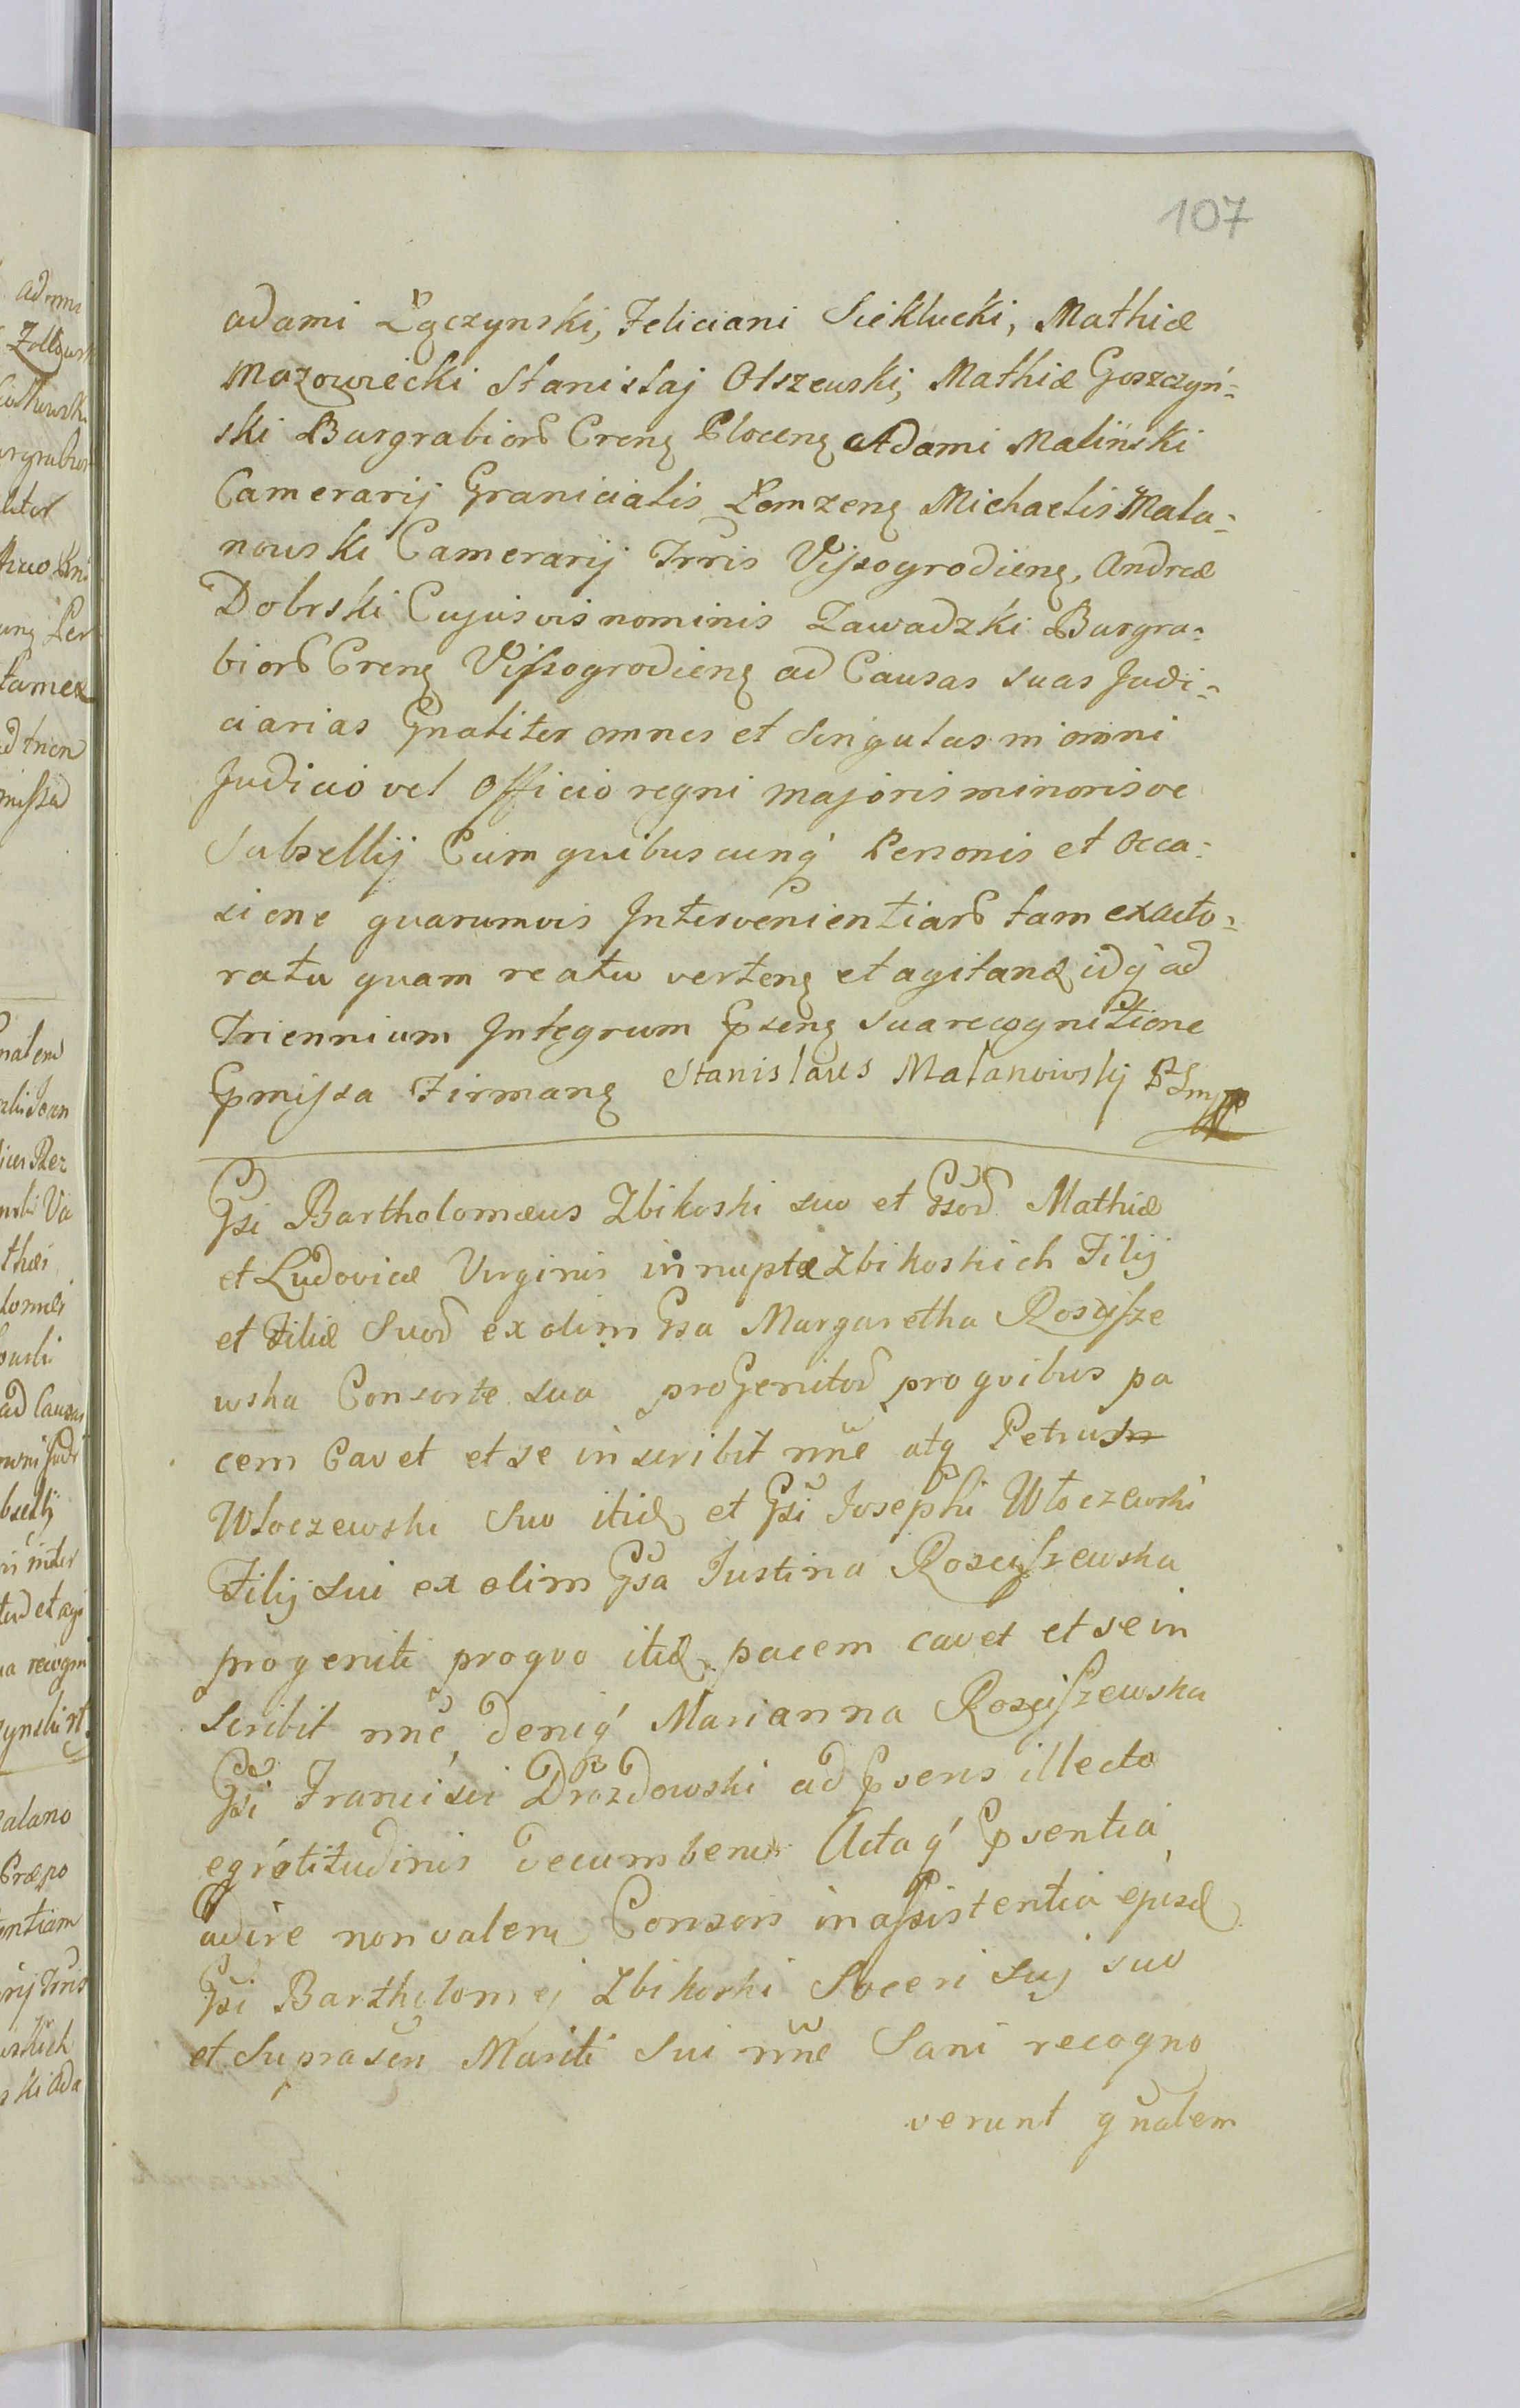 107
adami Łączynski, Feliciani Sieklucki, Mathiæ
Mazowiecki Stanislaj Olszewski, Mathiæ Goszczyń-
ski Burgrabiorꝫ Crenꝫ Plocenꝫ Adami Malinski
Camerarij Granicialis Łomzenꝫ Michaelis Mala-
nowski Camerarij Trris Vissogrodienꝫ, Andreæ
Dobrski Cujusvis nominis Zawadzki Burgra-
biorꝫ Crenꝫ Vissogrodienꝫ ad Causas suas Judi-
ciarias Gnaliter omnes et Singulas in omni
Judicio vel Officio regni majoris minorisve
Subsellij Cum quibuscunq' Personis et Occa-
sione quarumvis Intervenientiarꝫ tam exacto-
ratu quam reatu vertenꝫ et agitanꝫ idq' ad
Triennium Integrum Pp̃senꝫ sua recognitione
Pp̃missa Firmanꝫ Stanislaus Malanowskij
Gsi Bartholomæus Zbikoski suo et Gsod Mathiæ
et Ludovicæ Virginis innuptæ Zbikoskich Filij
et Filiæ Suod ex olim Gsa Margaretha Rosciſze
wska Consorte sua proGenitod pro quibus pa
cem Cavet et se inscribit nñe atq Petrus
Włoczewski Suo itidꝫ et Gsi Josephi Włoczewski
Filij sui ex olim Gsa Justina Rosciſzewska
progeniti pro quo itidꝫ pacem cavet et se in
scribit nñe deniq' Marianna Rosciſzewska
Gsi Francisci Drozdowski ad Pp̃sens in lecto
egrotitudinis decumbens Actaq' Pp̃sentia
adire non valens Consors in aſsistentia ejusdꝫ
Gsi Bartholomej Zbikoski Soceri Suj suo
et Suprascri Mariti Sui nñe Sani recogno
verunt gñalem